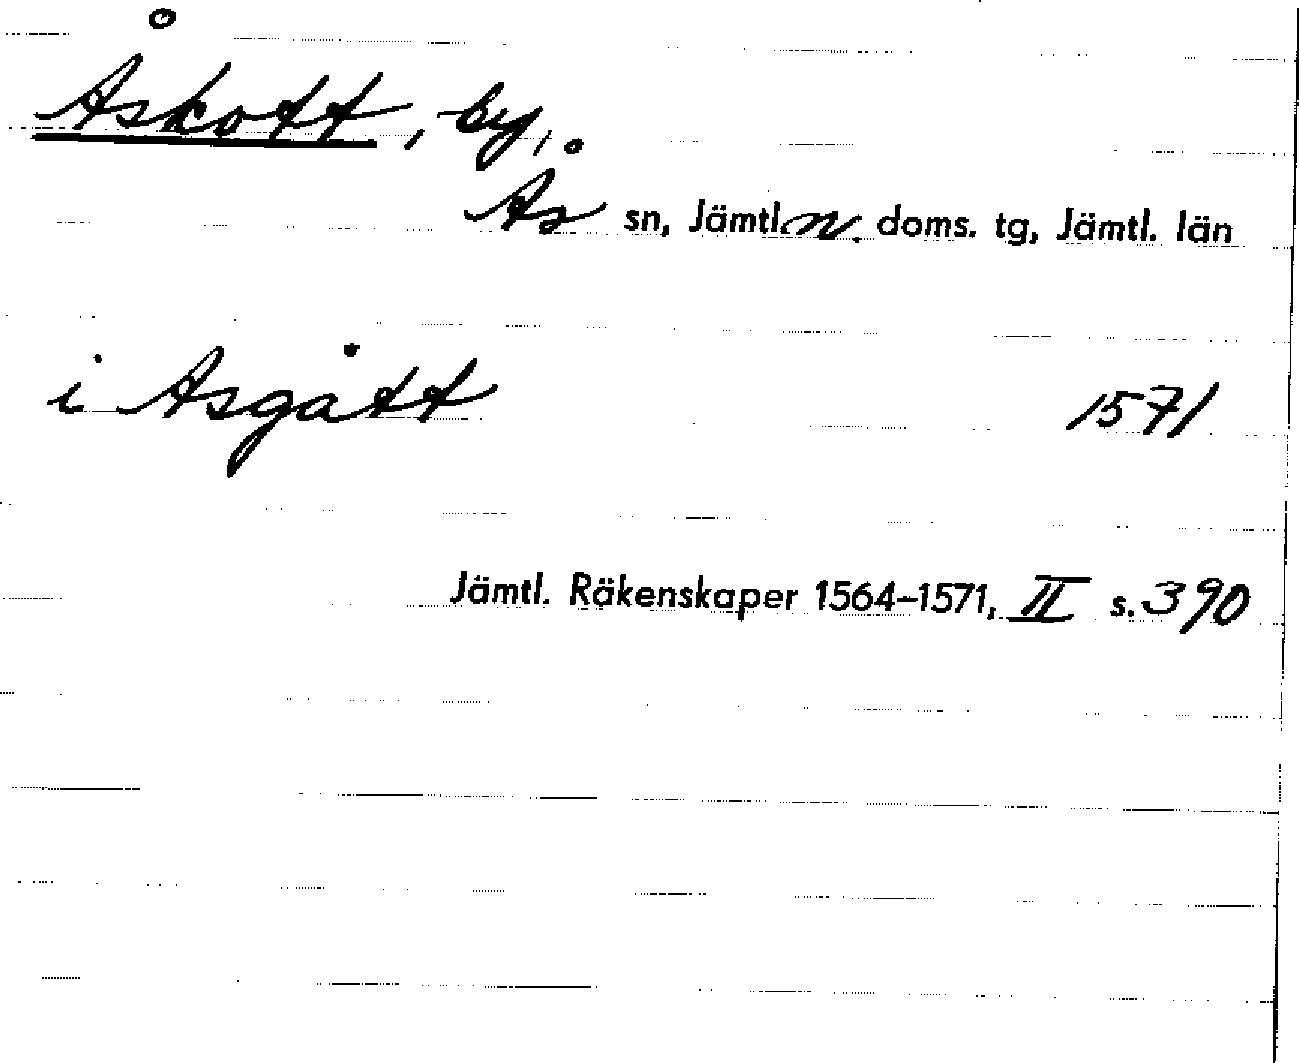 Åskott, by,
Ås sn, Jämtl. n. doms. tg, Jämtl. län
i Asgått 1571
Jämtl. Räkenskaper 1564–1571, II s. 390